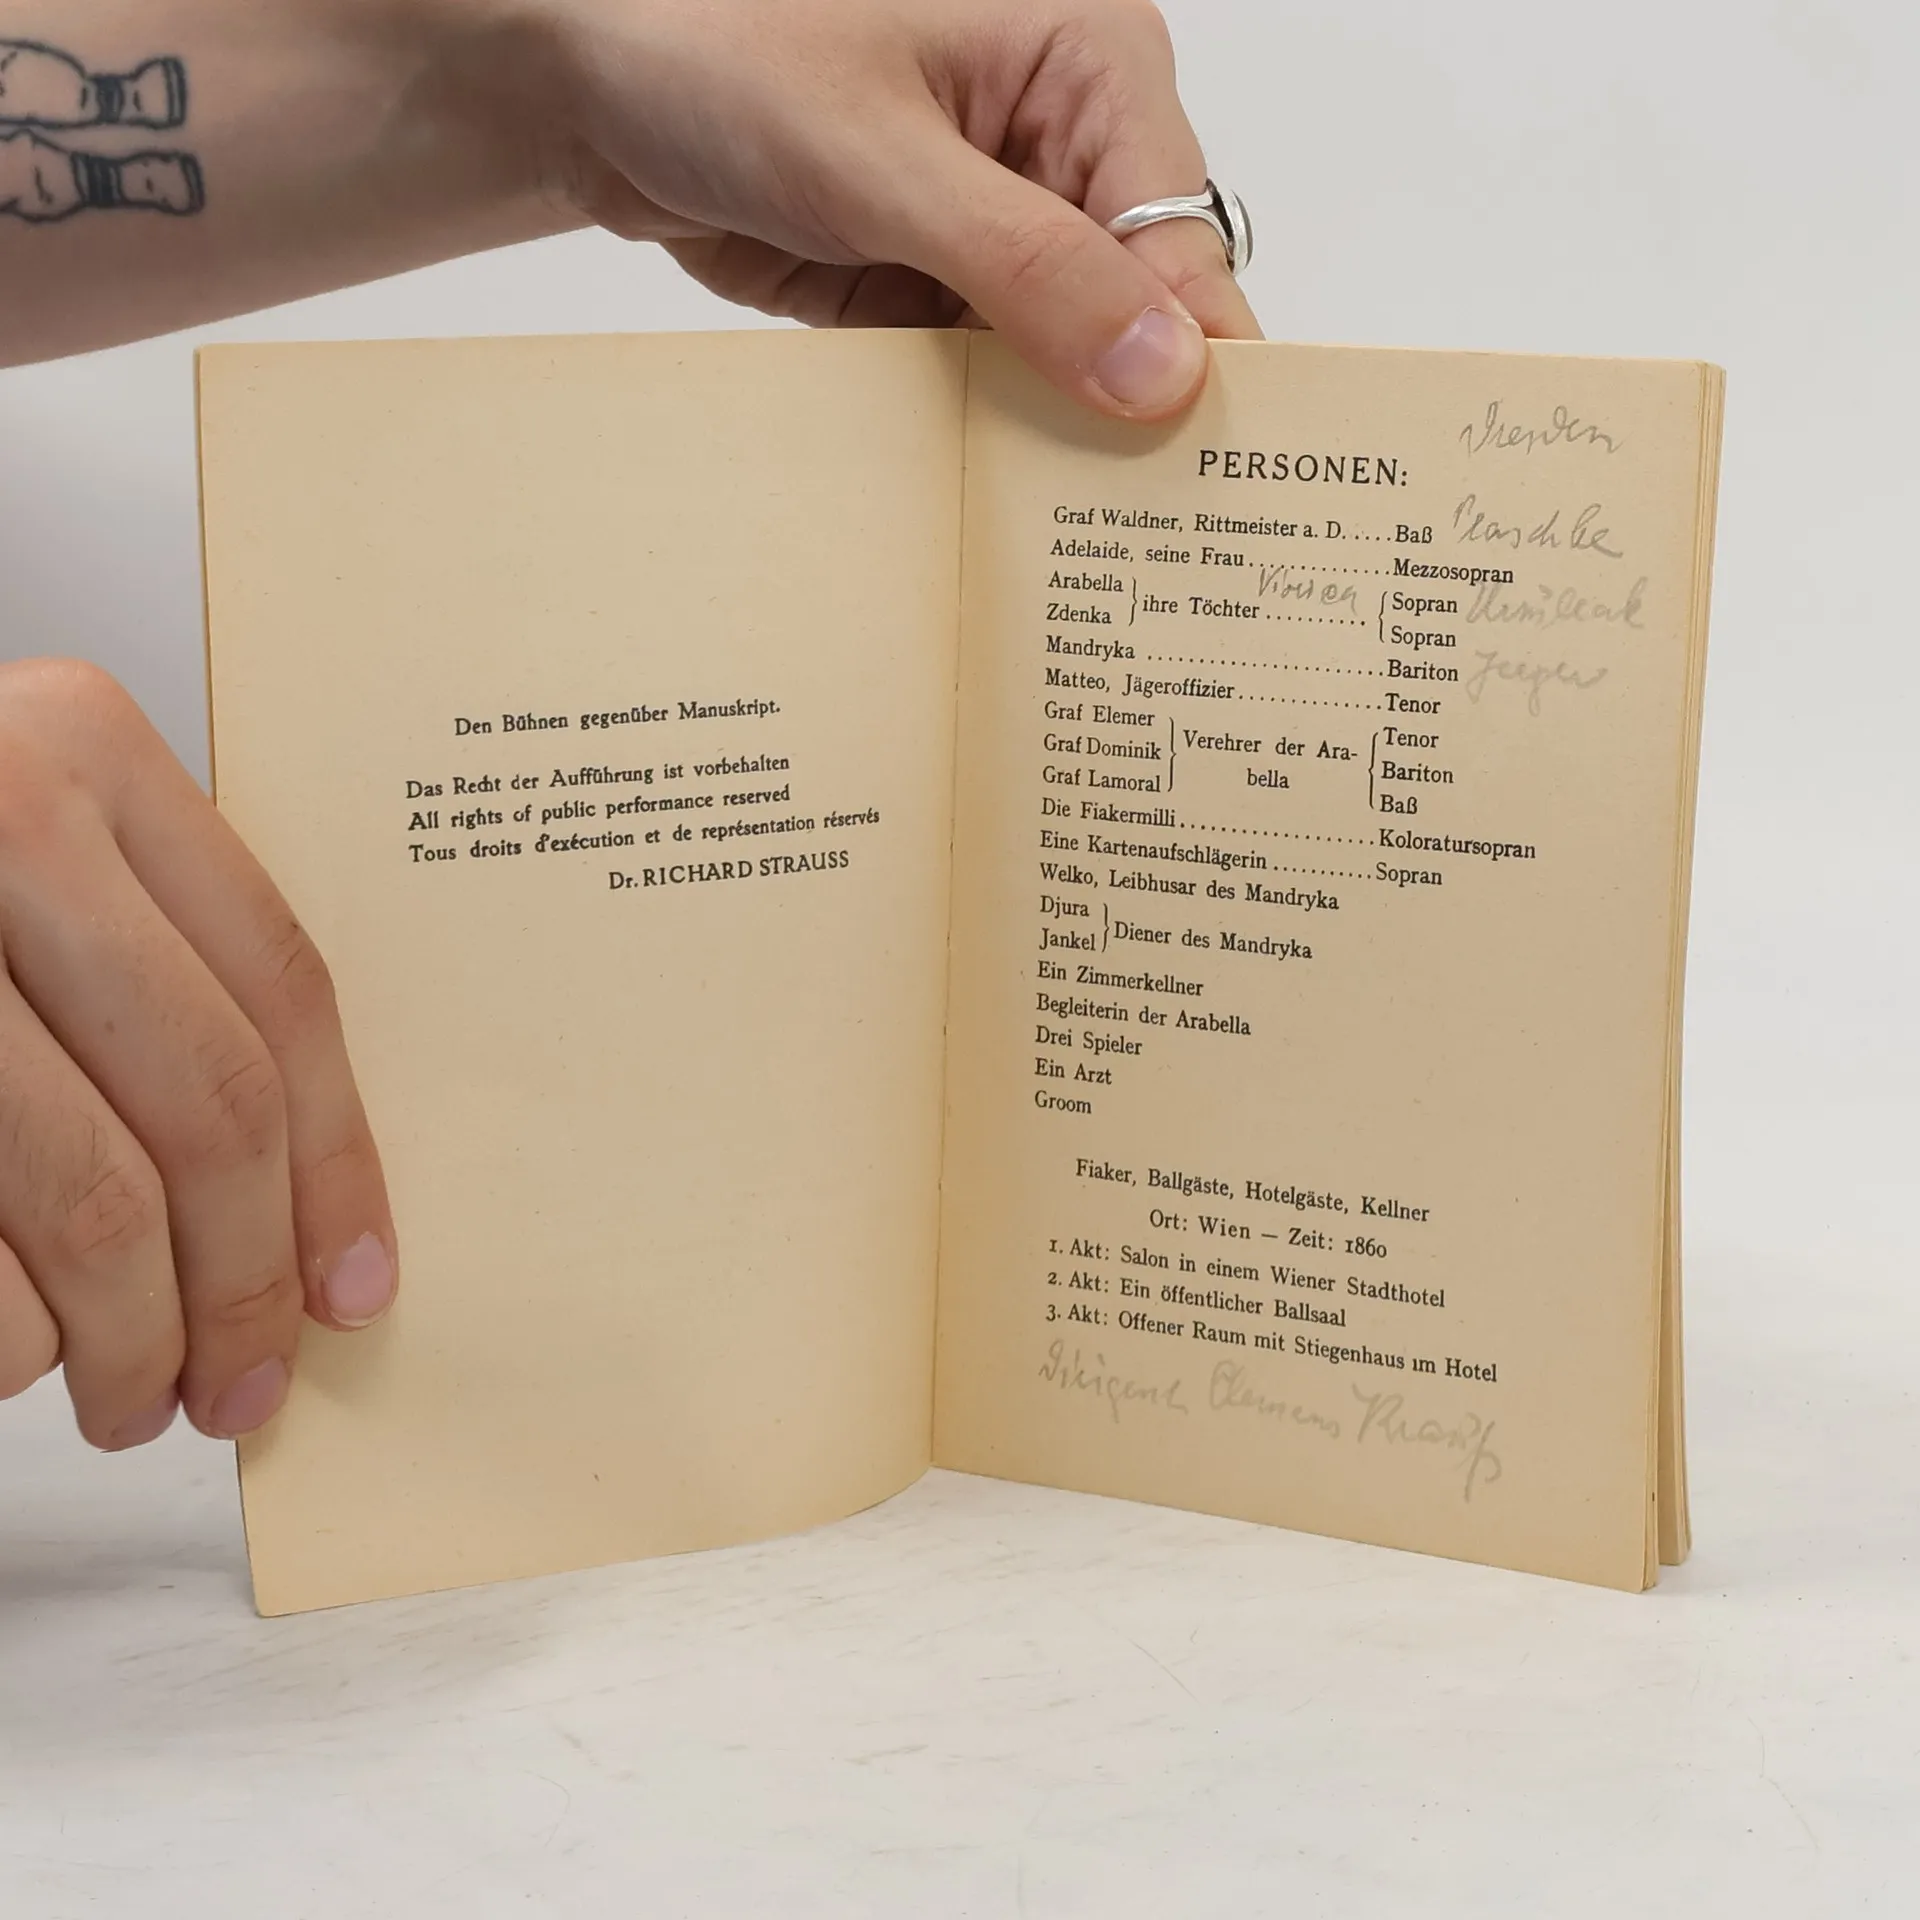 Den Bühnen gegenüber Manuskript.
Das Recht der Aufführung ist vorbehalten
All rights of public performance reserved
Tous droits d'exécution et de représentation réservés
Dr. RICHARD STRAUSS
Dresden
PERSONEN:
Graf Waldner, Rittmeister a. D. .....Baß Plaschke
Adelaide, seine Frau..............Mezzosopran
Viorica
Arabella } ihre Töchter .......... { Sopran Ursuleac
Zdenka Sopran
Mandryka .......................Bariton Jerger
Matteo, Jägeroffizier..............Tenor
Graf Elemer Tenor
Graf Dominik } Verehrer der Ara- { Bariton
Graf Lamoral bella Baß
Die Fiakermilli...................Koloratursopran
Eine Kartenaufschlägerin ..........Sopran
Welko, Leibhusar des Mandryka
Djura
Jankel } Diener des Mandryka
Ein Zimmerkellner
Begleiterin der Arabella
Drei Spieler
Ein Arzt
Groom
Fiaker, Ballgäste, Hotelgäste, Kellner
Ort: Wien — Zeit: 1860
1. Akt: Salon in einem Wiener Stadthotel
2. Akt: Ein öffentlicher Ballsaal
3. Akt: Offener Raum mit Stiegenhaus im Hotel
Dirigent Clemens Krauß